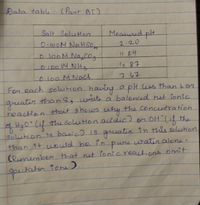 Data table (Part A1)
Salt Solution Measured pH
0.100M NaHSO4 2.20
0.100M Na2CO3 11.84
0.100M NH3 87
0.100M NaCl 7.67
For each solution having a pH less than 6 or
greater than 8, write a balanced net ionic
reaction that shows why the concentration
of H3O+ (if the solution is acidic) or OH- (if the
solution is basic) is greater in this solution
than it would be in pure water alone.
(Remember that net ionic reactions omit
spectator ions)